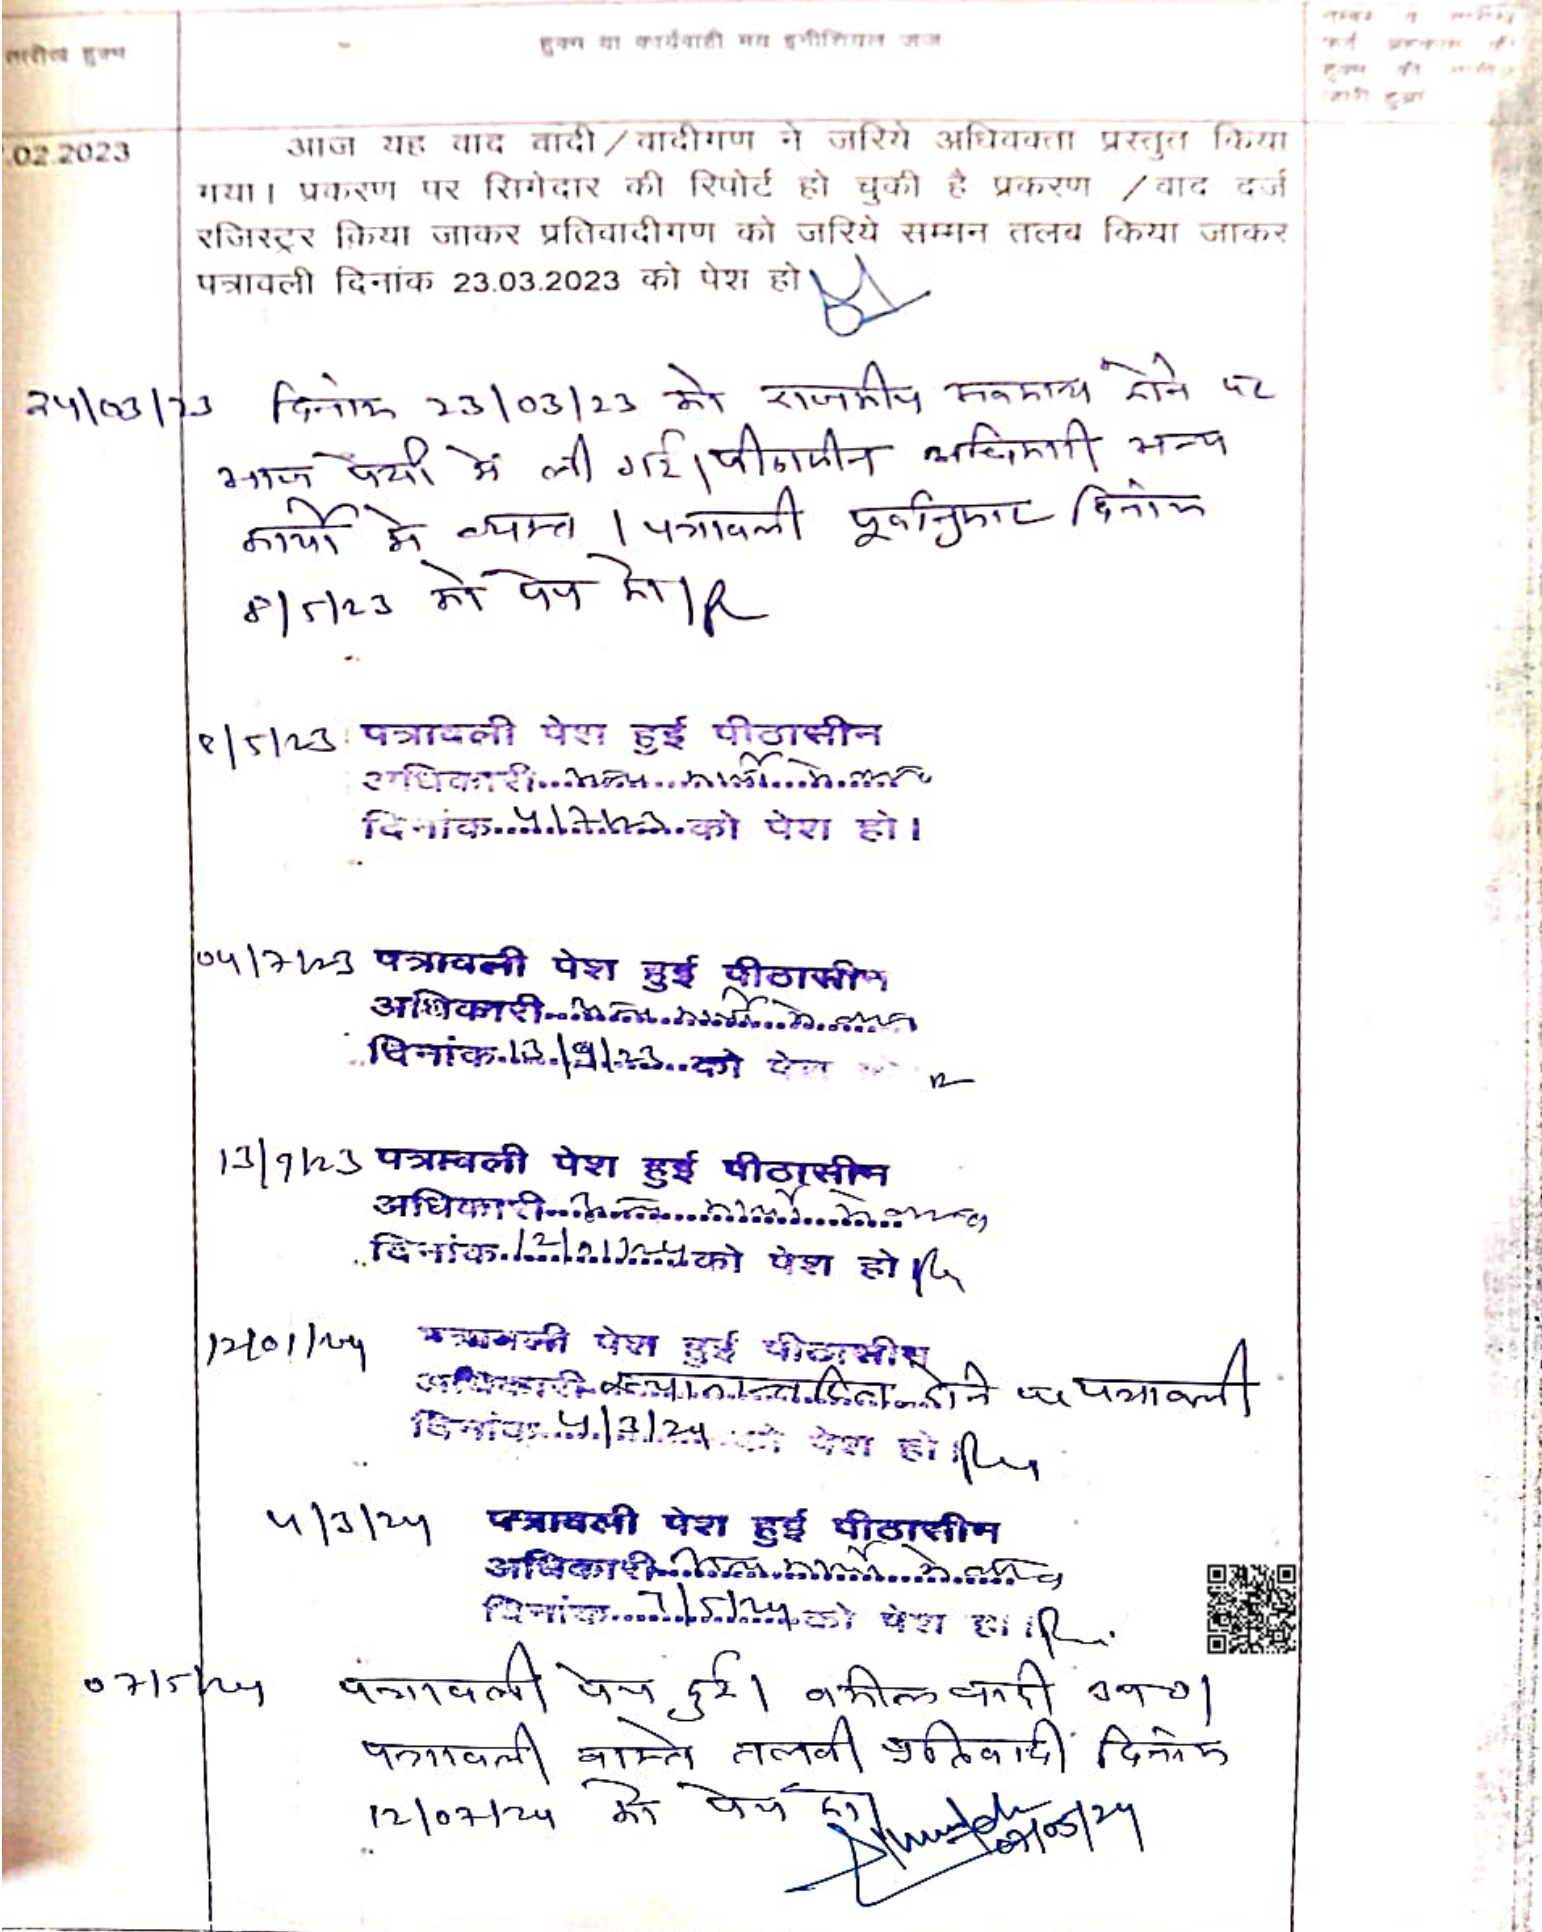 तारीख हुक्म
हुक्म या कार्यवाही मय इनीशियल जज
नम्बर व तारीख
हुक्म की
जारी हुआ
.02.2023
आज यह वाद वादी/वादीगण ने जरिये अधिवक्ता प्रस्तुत किया
गया। प्रकरण पर सिगेदार की रिपोर्ट हो चुकी है प्रकरण /वाद दर्ज
रजिस्ट्रर किया जाकर प्रतिवादीगण को जरिये सम्मन तलब किया जाकर
पत्रावली दिनांक 23.03.2023 को पेश हो
24/03/23 दिनांक 23/03/23 को राजकीय अवकाश होने पर
आज पेशी में ली गई। पीठासीन अधिकारी अन्य
कार्यो मे व्यस्त। पत्रावली पूर्वानुसार दिनांक
8/5/23 को पेश हो।
8/5/23 पत्रावली पेश हुई पीठासीन
अधिकारी अन्य कार्यो मे व्यस्त
दिनांक 4/7/23 को पेश हो।
04/7/23 पत्रावली पेश हुई पीठासीन
अधिकारी अन्य कार्यो मे व्यस्त
दिनांक 13/9/23 को पेश
13/9/23 पत्रावली पेश हुई पीठासीन
अधिकारी अन्य कार्यो मे व्यस्त
दिनांक 12/01/24 को पेश हो
12/01/24 पत्रावली पेश हुई पीठासीन
अधिकारी स्थानान्तरित होने पर पत्रावली
दिनांक 4/3/24 को पेश हो।
4/3/24 पत्रावली पेश हुई पीठासीन
अधिकारी अन्य कार्यो मे व्यस्त
दिनांक 7/5/24 को पेश हो।
07/5/24 पत्रावली पेश हुई। वकील वादी उप०।
पत्रावली वास्ते तलबी प्रतिवादी दिनांक
12/07/24 को पेश हो।
07/05/24